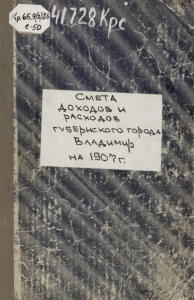 41728 Крс
Кр 65.9(2)26
С-50
Смета
доходов и
расходов
губернского города
Владимир
на 1907г.